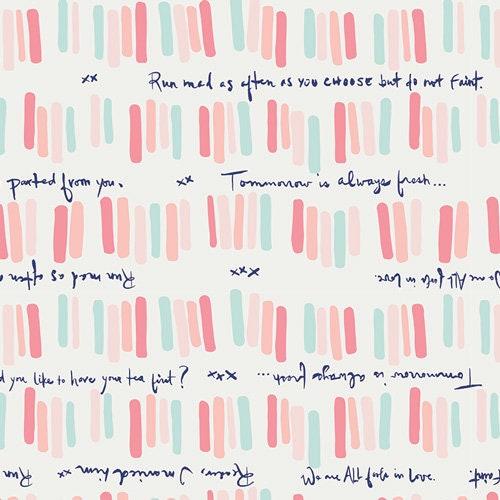 xx Run mad as often as you choose but do not faint.
parted from you. xx Tommorrow is always fresh...
Run mad as often xxx We are All fools in Love.
d you like to have your tea first? xxx Tommorrow is always fresh...
Run xx Reader, I married him We are All fools in Love. faint.